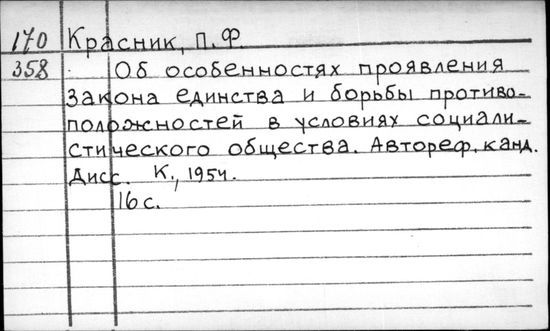 170 Красник, П.Ф.
358 Об особенностях проявления
закона единства и борьбы противо-
положностей в условиях социали-
стического общества. Автореф. канд.
Дисс. К., 1954.
16 с.